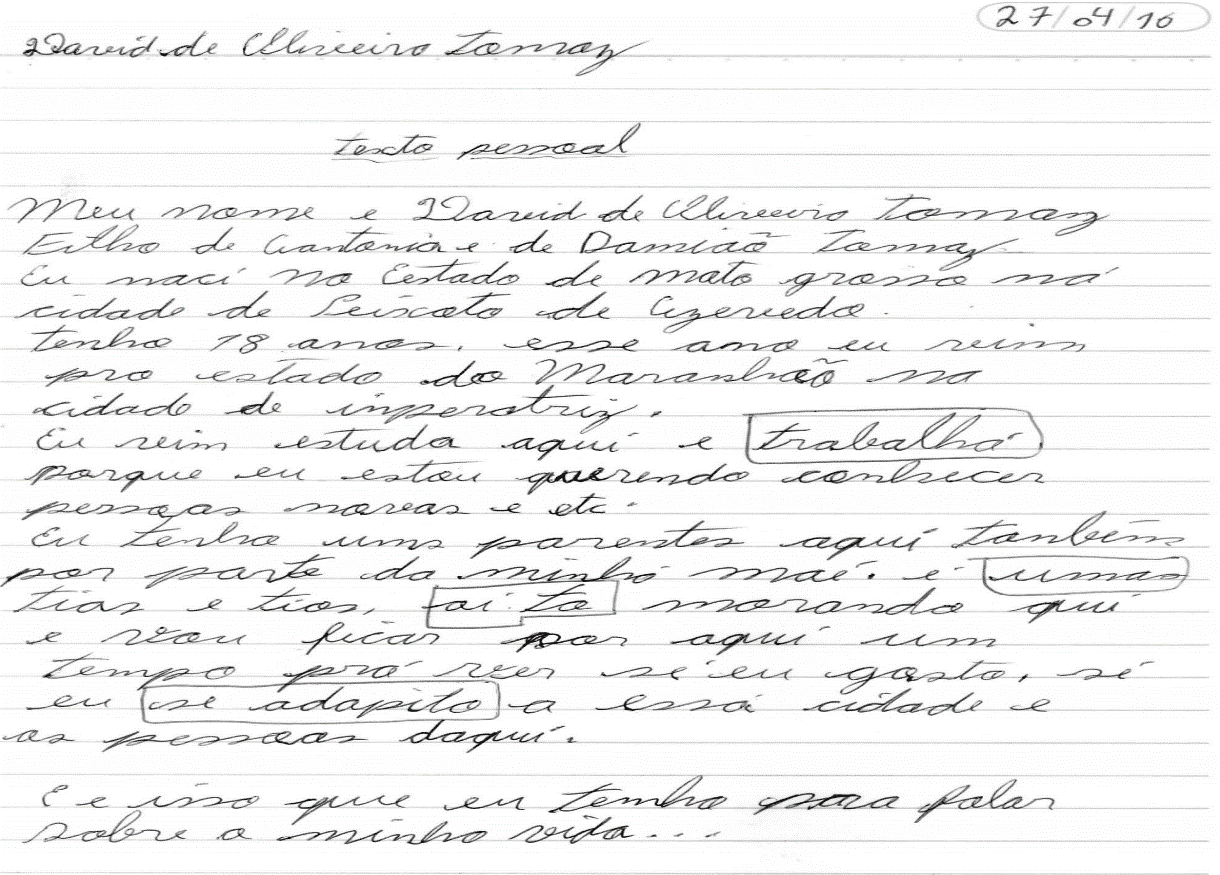 27/04/16
David de Oliveira Tomaz
texto pessoal
Meu nome e David de Oliveira Tomaz
Filho de Antonia e de Damiaõ Tomaz
Eu naci no Estado de mato grosso ná
cidade de Peixoto de Azevedo.
tenho 18 anos. esse ano eu veim
pro estado do Maranhaõ na
cidade de inperatriz.
Eu veim estuda aquí e trabalhá
porque eu estou querendo conhecer
pessoas novas e etc.
Eu tenho ums parentes aquí tanbém
por parte da minhá maé. e umas
tias e tios, ai to morando quí
e vou ficar por aquí um
tempo prá ver sé eu gosto, sé
eu se adapito a essá cidade e
as pessoas daquí.
E e isso que eu tenho para falar
sobre a minha vida...